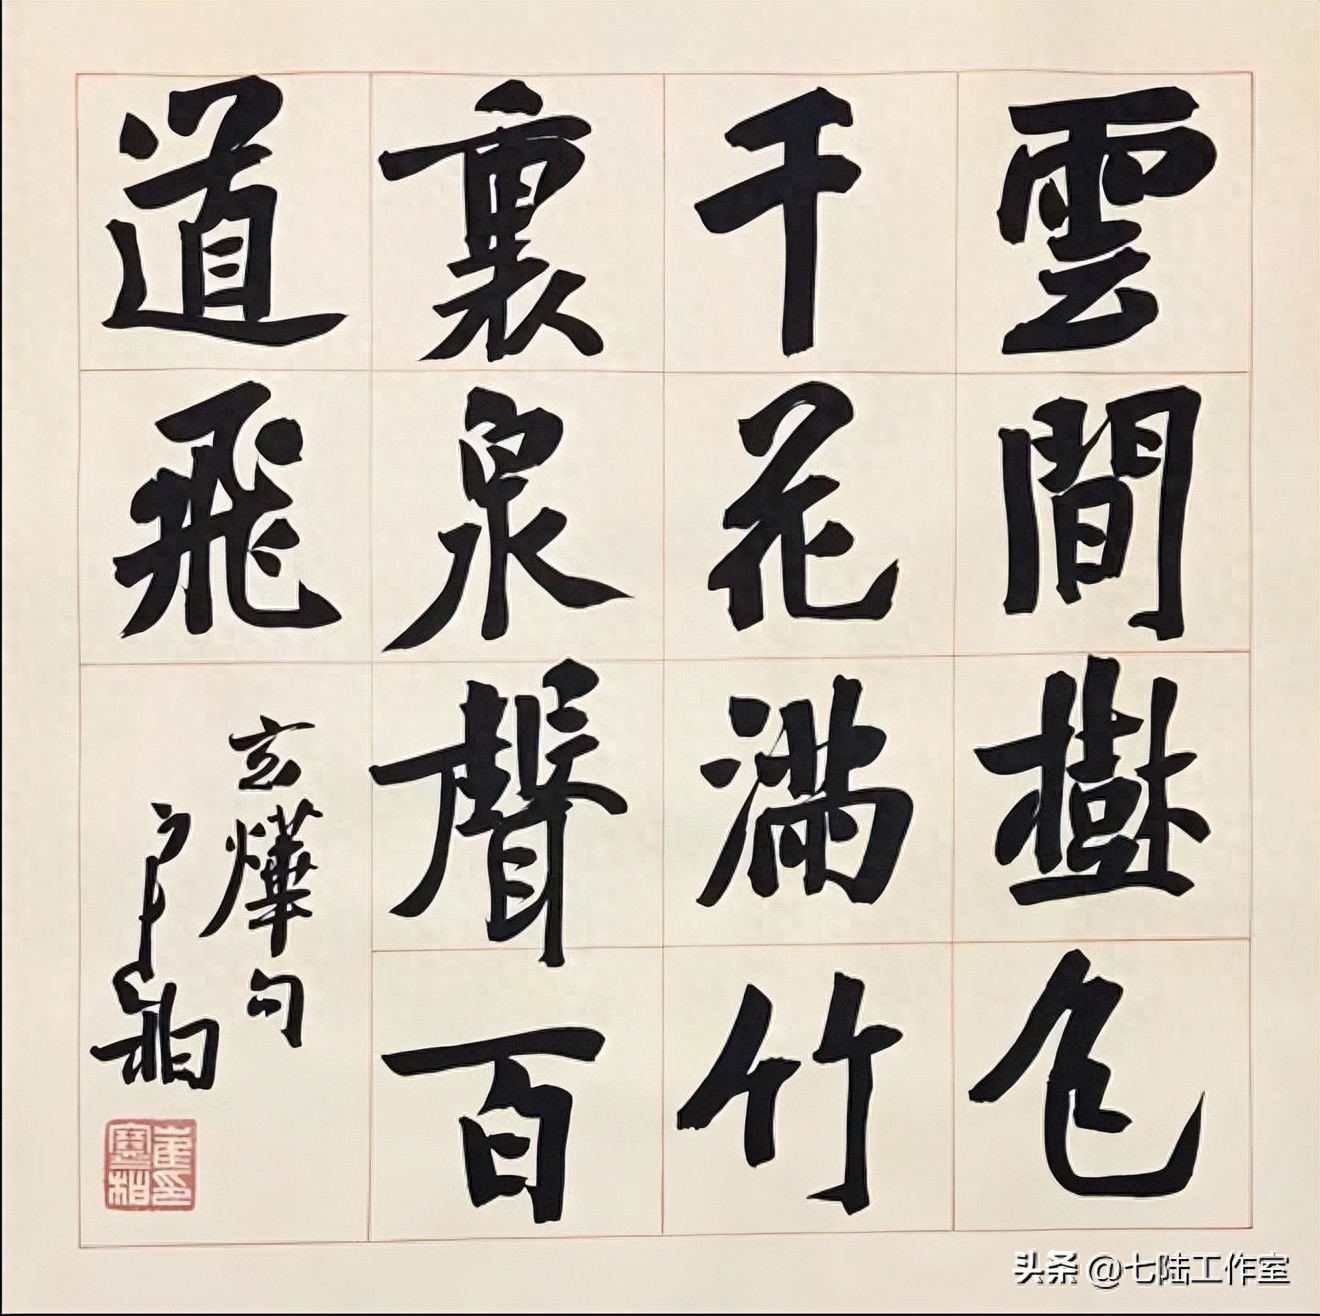 雲間樹色
千花滿竹
裏泉聲百
道飛
玄燁句
崔印
寒柏
头条 @七陆工作室